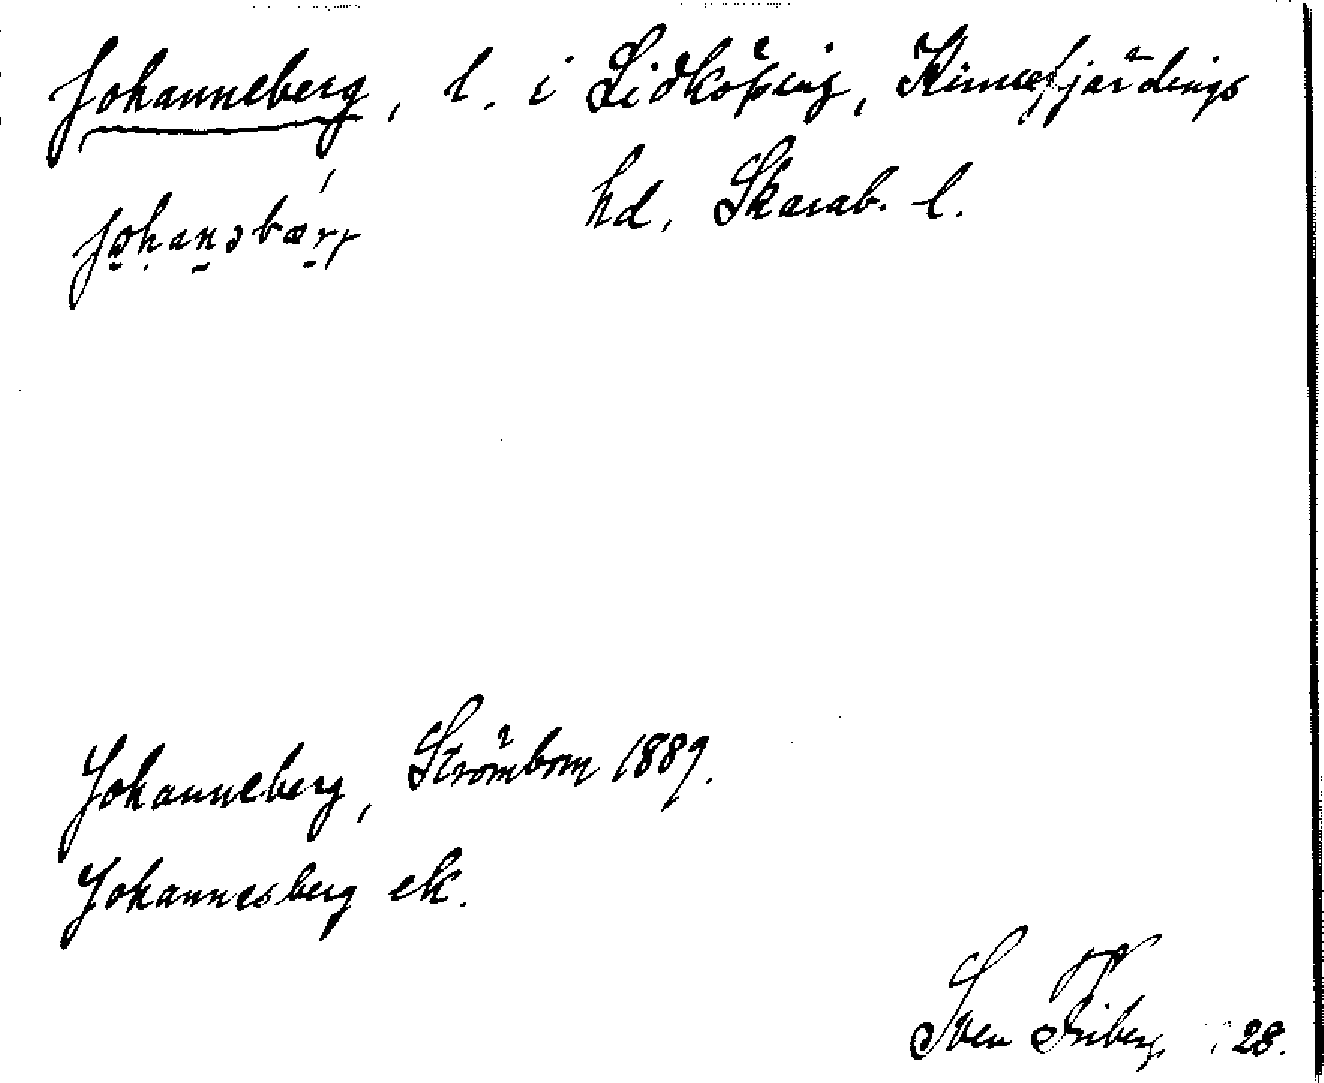 Johanneberg, l. i Lidköping, Kinnefjärdings
hd, Skarab. l.
johanəbærj
Johanneberg, Strömbom 1889.
Johannesberg ek.
Sven Friberg 28.